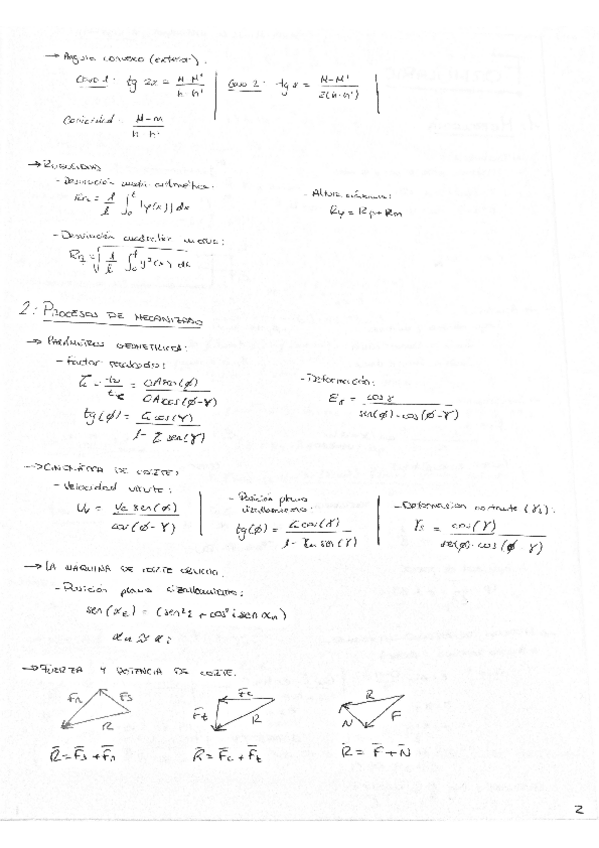 → Angulo convexo (exterior).
Caso 1: tg 2α = M-M' / h-h' | Caso 2: tg α = M-M' / 2(h-h') |
Conicidad: M-m / h-h'
→ Rugosidad
- Desviación media aritmética.
Ra = 1/l ∫₀ˡ |y(x)| dx
- Altura máxima:
Ry = Rp + Rm
- Desviación cuadrática media:
Rq = √(1/l ∫₀ˡ y²(x) dx)
2: PROCESOS DE MECANIZADO
→ PARÁMETROS GEOMÉTRICOS:
- Factor recalcado:
= OA sen(φ) / OA cos(φ-γ)
tg(φ) = ζ cos(γ) / 1 - ζ sen(γ)
- Deformación:
= cos γ / sen(φ)·cos(φ-γ)
→ CINEMÁTICA DE CORTE:
- Velocidad viruta:
cos(φ-γ)
- Posición plano cizallamiento:
tg(φ) =
- Deformación cortante (γs):
γs = cos(γ) / sen(φ)·cos(φ-γ)
→ LA MAQUINA DE CORTE OBLICUO.
- Posición plano cizallamiento:
sen(αe) = (sen²i + cos²i sen αn)
→ FUERZA Y POTENCIA DE CORTE.
Fn Fs R
Fc Ft R
R N F
R̄ = F̄s + F̄n
R̄ = F̄c + F̄t
R̄ = F̄ + N̄
2